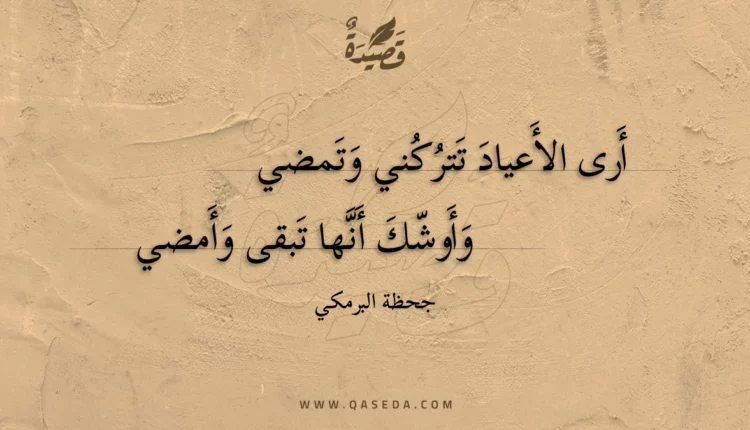 قَصِيدَةٌ
أَرى الأَعيادَ تَترُكُني وَتَمضي
وَأَوشّكَ أَنَّها تَبقى وَأَمضي
جحظة البرمكي
WWW.QASEDA.COM